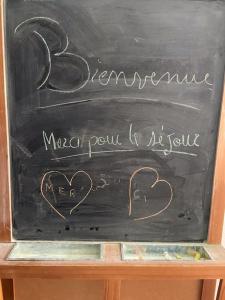 Bienvenue
Merci pour le séjour
MER